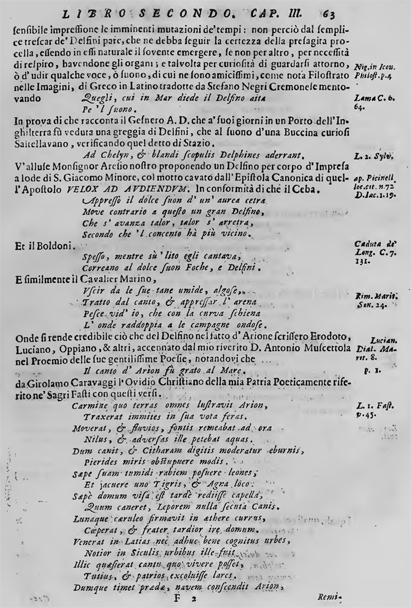 LIBRO SECONDO. CAP. III. 63
sensibile impressione le imminenti mutazioni de'tempi: non perciò dal sempli-
ce trescar de' Delfini pare, che ne debba seguir la certezza della presagita pro-
cella, essendo in essi naturale il sovente emergere, se non per altro, per necessità
di respiro, havendone gli organi; e talvolta per curiosità di guardarsi attorno,
ò d'udir qualche voce, ò suono, di cui ne sono amicissimi, come nota Filostrato
nelle Imagini, di Greco in Latino tradotte da Stefano Negri Cremonese mento-
vando Quegli, cui in Mar diede il Delfino aita
Pe 'l suono.
In prova di che racconta il Gesnero A. D. che a'suoi giorni in un Porto dell'In-
ghilterra fù veduta una greggia di Delfini, che al suono d'una Buccina curiosi
Saltellavano, verificando quel detto di Stazio.
Ad Chelyn, & blandi scopulis Delphines aderrant.
V'alluse Monsignor Arcio nostro proponendo un Delfino per corpo d'Impresa
a lode di S. Giacomo Minore, col motto cavato dall'Epistola Canonica di quel-
l'Apostolo VELOX AD AVDIENDVM. In conformità di ché il Ceba.
Appresso il dolce suon d'un'aurea cetra
Move contrario a questo un gran Delfino,
Che s'avanza talor, talor s'arretra,
Secondo che 'l concento hà più vicino.
Et il Boldoni.
Spesso, mentre sù'lito egli cantava,
Correano al dolce suon Foche, e Delfini.
E similmente il Cavalier Marino,
Uscir da le sue tane umide, algose,
Tratto dal canto, & appressar l'arena
Pesce vid'io, che con la curva schiena
L'onde raddoppia a le campagne ondose.
Onde si rende credibile ciò che del Delfino nel fatto d'Arione scrissero Erodoto,
Luciano, Oppiano, & altri, accennato dal mio riverito D. Antonio Muscettola
nel Proemio delle sue gentilissime Poesie, notandovi che
Il canto d'Arion fù grato al Mare.
da Girolamo Caravaggi l'Ovidio Christiano della mia Patria Poeticamente rife-
rito ne' Sagri Fasti con questi versi.
Carmine quo terras omnes lustravit Arion,
Traxerat immites in sua vota feras.
Moverat, & fluvios, fontis remeabat ad ora
Nilus, & adversas ille petebat aquas.
Dum canit, & Citharam digitis moderatur eburnis,
Pierides miris obstupuere modis.
Sæpe suam tumidi rabiem posuere leones,
Et jacuere uno Tigris, & Agna loco.
Sæpè domum visa est tardè rediisse capella,
Quum caneret, Leporem nulla secuta Canis.
Lunaque cæruleo firmavit in æthere currus,
Cœperat, & frater tardior ire domum.
Venerat in Latias nec adhuc bene cognitus urbes,
Notior in Siculis urbibus ille fuit.
Illic quæsierat cantu quo vivere posset,
Tutius, & patrios excoluisse lares.
Dumque timet prædæ, navem conscendit Arion,
F 2 Remi-
Nig. in Icon.
Philost. p. 4
Lama C. 6.
64.
L. 2. Sylv.
ap. Picinell.
loc. cit. n. 72
D. Iac. 1. 19.
Caduta de'
Long. C. 7.
131.
Rim. Marit.
Son. 24.
Lucian.
Dial. Ma-
rit. 8.
p. 1.
L. 1. Fast.
p. 45.